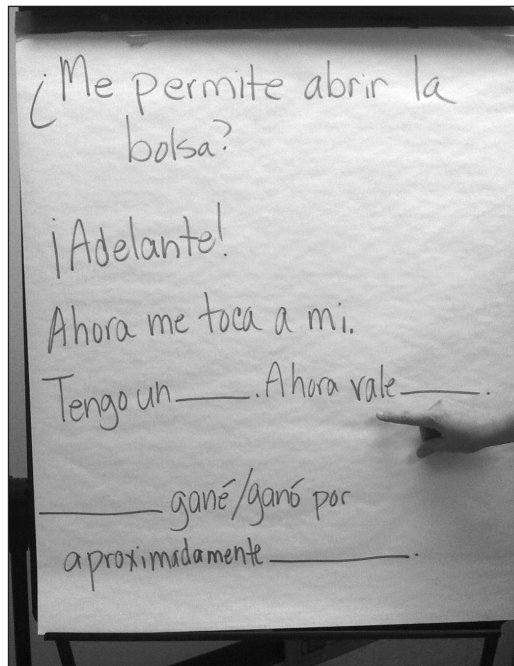 ¿Me permite abrir la
bolsa?
¡Adelante!
Ahora me toca a mi.
Tengo un_____. Ahora vale_____.
_____ gané/ganó por
aproximadamente_____.